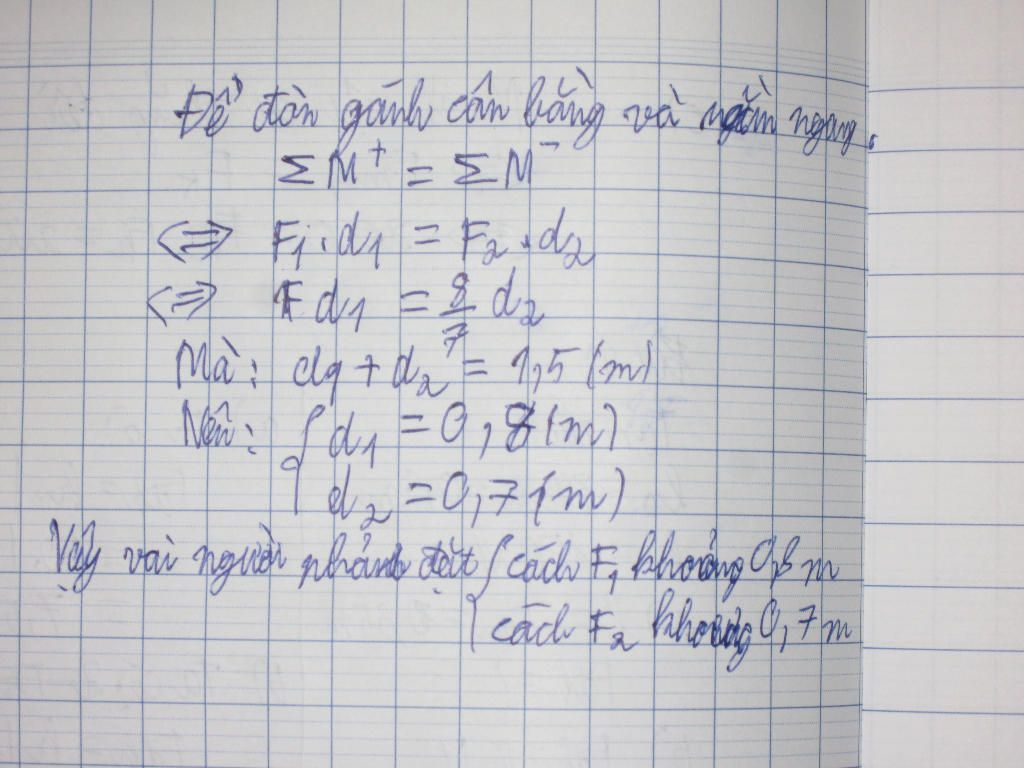 Để đòn gánh cân bằng và nằm ngang.
ΣM⁺ = ΣM⁻
<=> F₁.d₁ = F₂.d₂
<=> d₁ = 8/7 d₂
Mà: d₁ + d₂ = 1,5 (m)
Nên: { d₁ = 0,8 (m)
d₂ = 0,7 (m)
Vậy vai người phải đặt { cách F₁ khoảng 0,8 m
cách F₂ khoảng 0,7 m